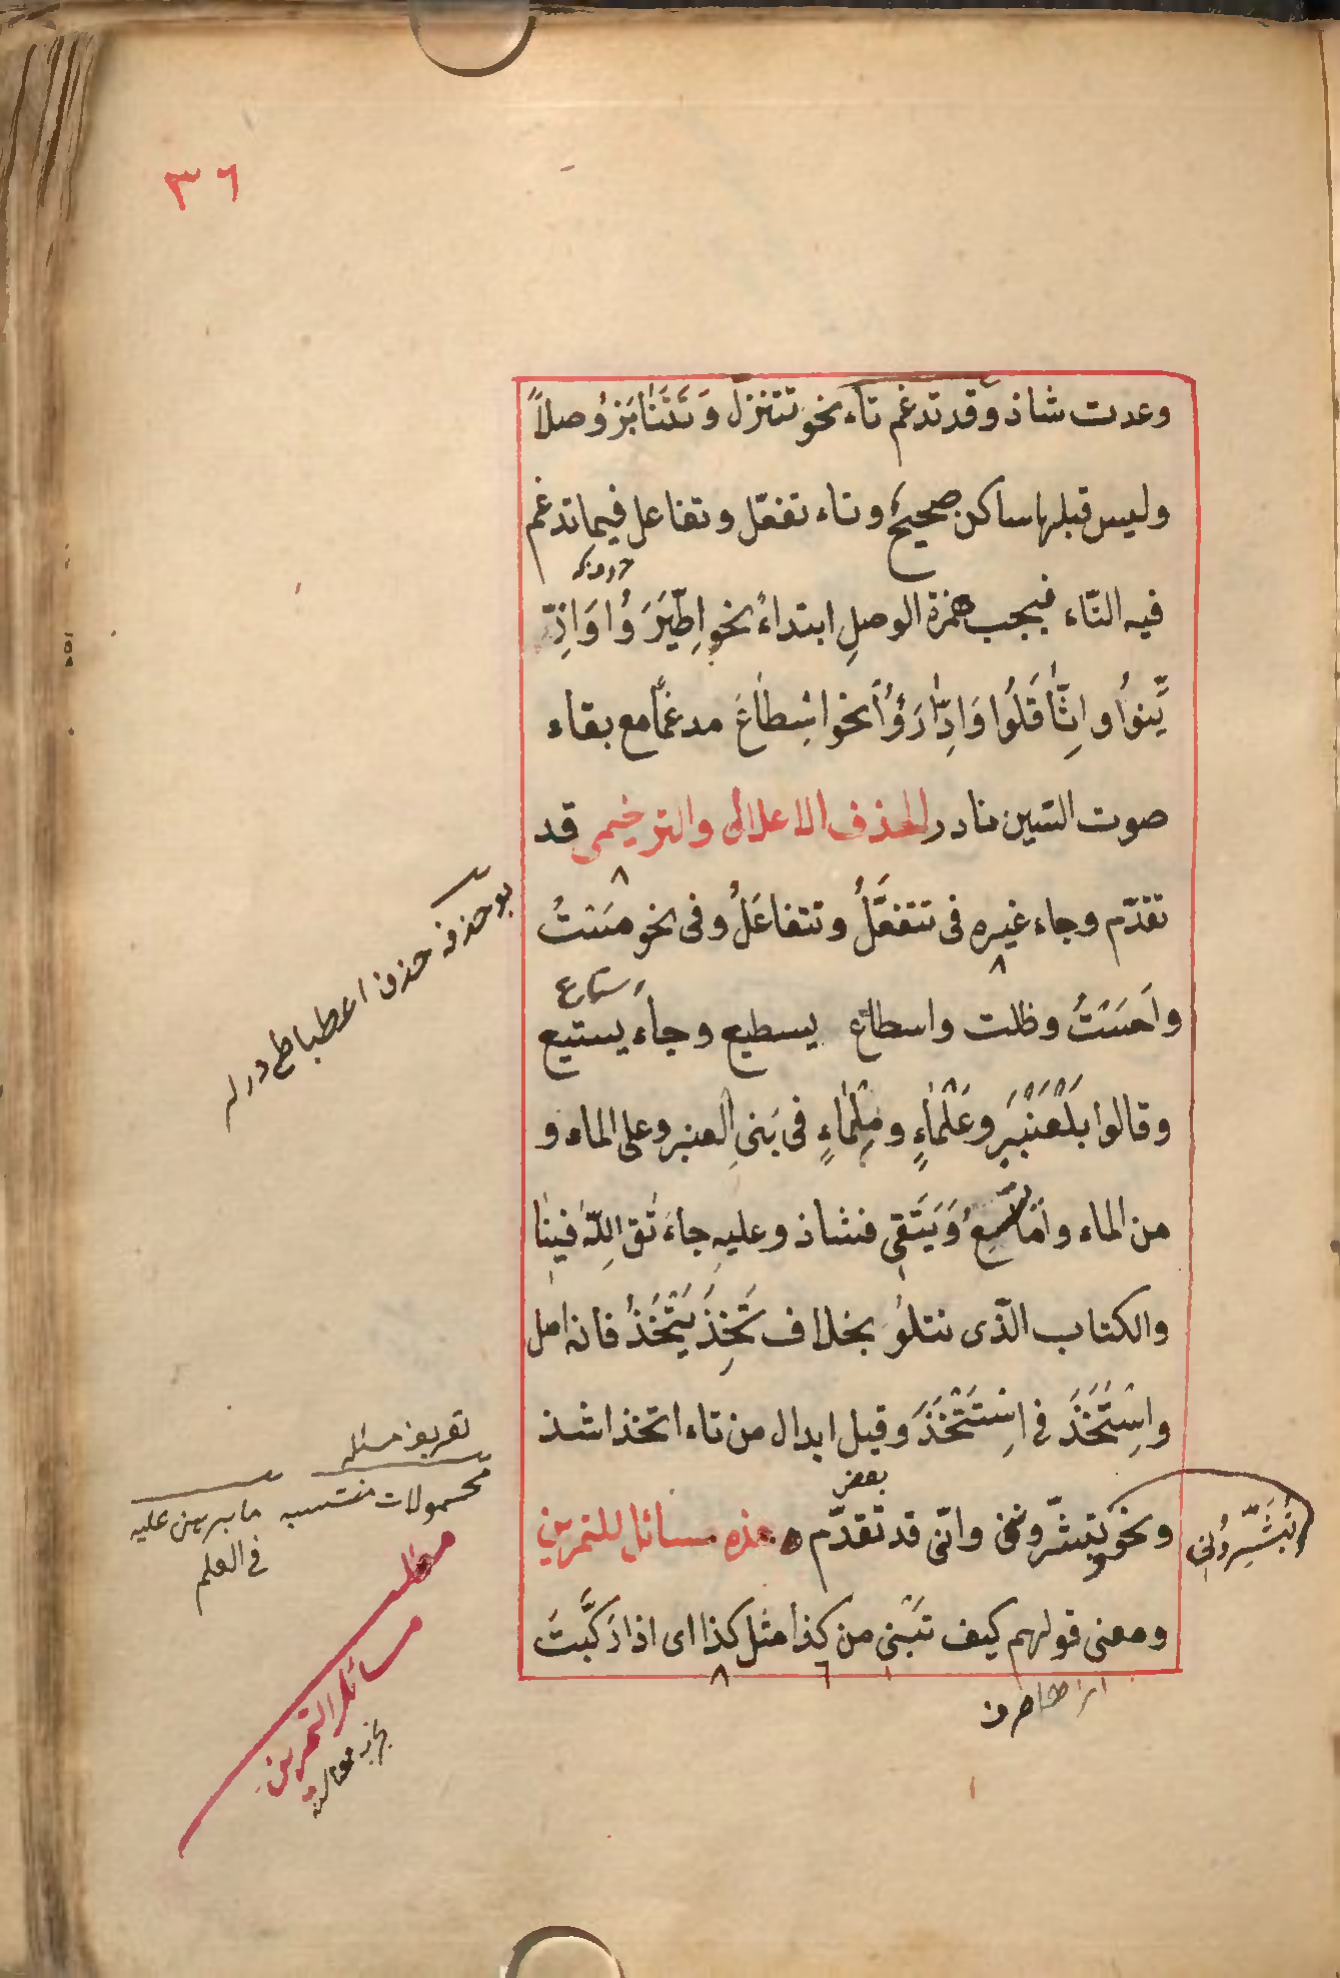 ٣٦
وعدت شاذ وقد تدغم تاء نحو تتنزل وَتَتَنَابَزُوا وصلاً
وليس قبلها ساكن صحيح وتاء تفعّل وتفاعل فيما تدغم
فيه التّاء فيجب همزة الوصلِ ابتداءً نحو اِطَّيَّرَوُا وَازَّ
يَّنُوا واِثَّاقَلُوا وَادَّارَؤُا نحو اسْطاعَ مدغمًا مع بقاء
صوت السّين نادر الحذف الاعلالى والترخيمى قد
تقدّم وجاء غيره فى تتفعَّلُ وتتفاعَلُ وفى نحو مَسْتُ
واَحَسْتُ وظلت واسطاع يسطيع وجاء يستيع
ستاع
وقالوا بَلْعَنْبَرِ وعَلْمَاءِ ومِلْمَاءِ فى بَنِى العنبر وعلى الماء و
من الماء وامّا يَتَسِعُ وَيَتَقِى فشاذ وعليه جاءَ تَقِ اللهَ فينا
والكتاب الّذى نتلوُ بخلاف تَخِذَ يَتْخَذُ فانه اصل
واِسْتَخَذَ فى اِسْتَتْخَذَ وقيل ابدال من تاء اتخذ اشذ
بعض
ونحو تبشّرونى وانّى قد تقدّم هذه مسائل للتمرين
تُبَشِّرُونِى
ومعنى قولهم كيف تَبْنِى من كذا مثل كذا اى اذا رَكَّبتَ
بو حذفه حذف اعطباطى درلر
تعريف مسئله
محمولات منتسبه ما يبرهن عليه
فى العلم
مطلب
مسائل التمرين